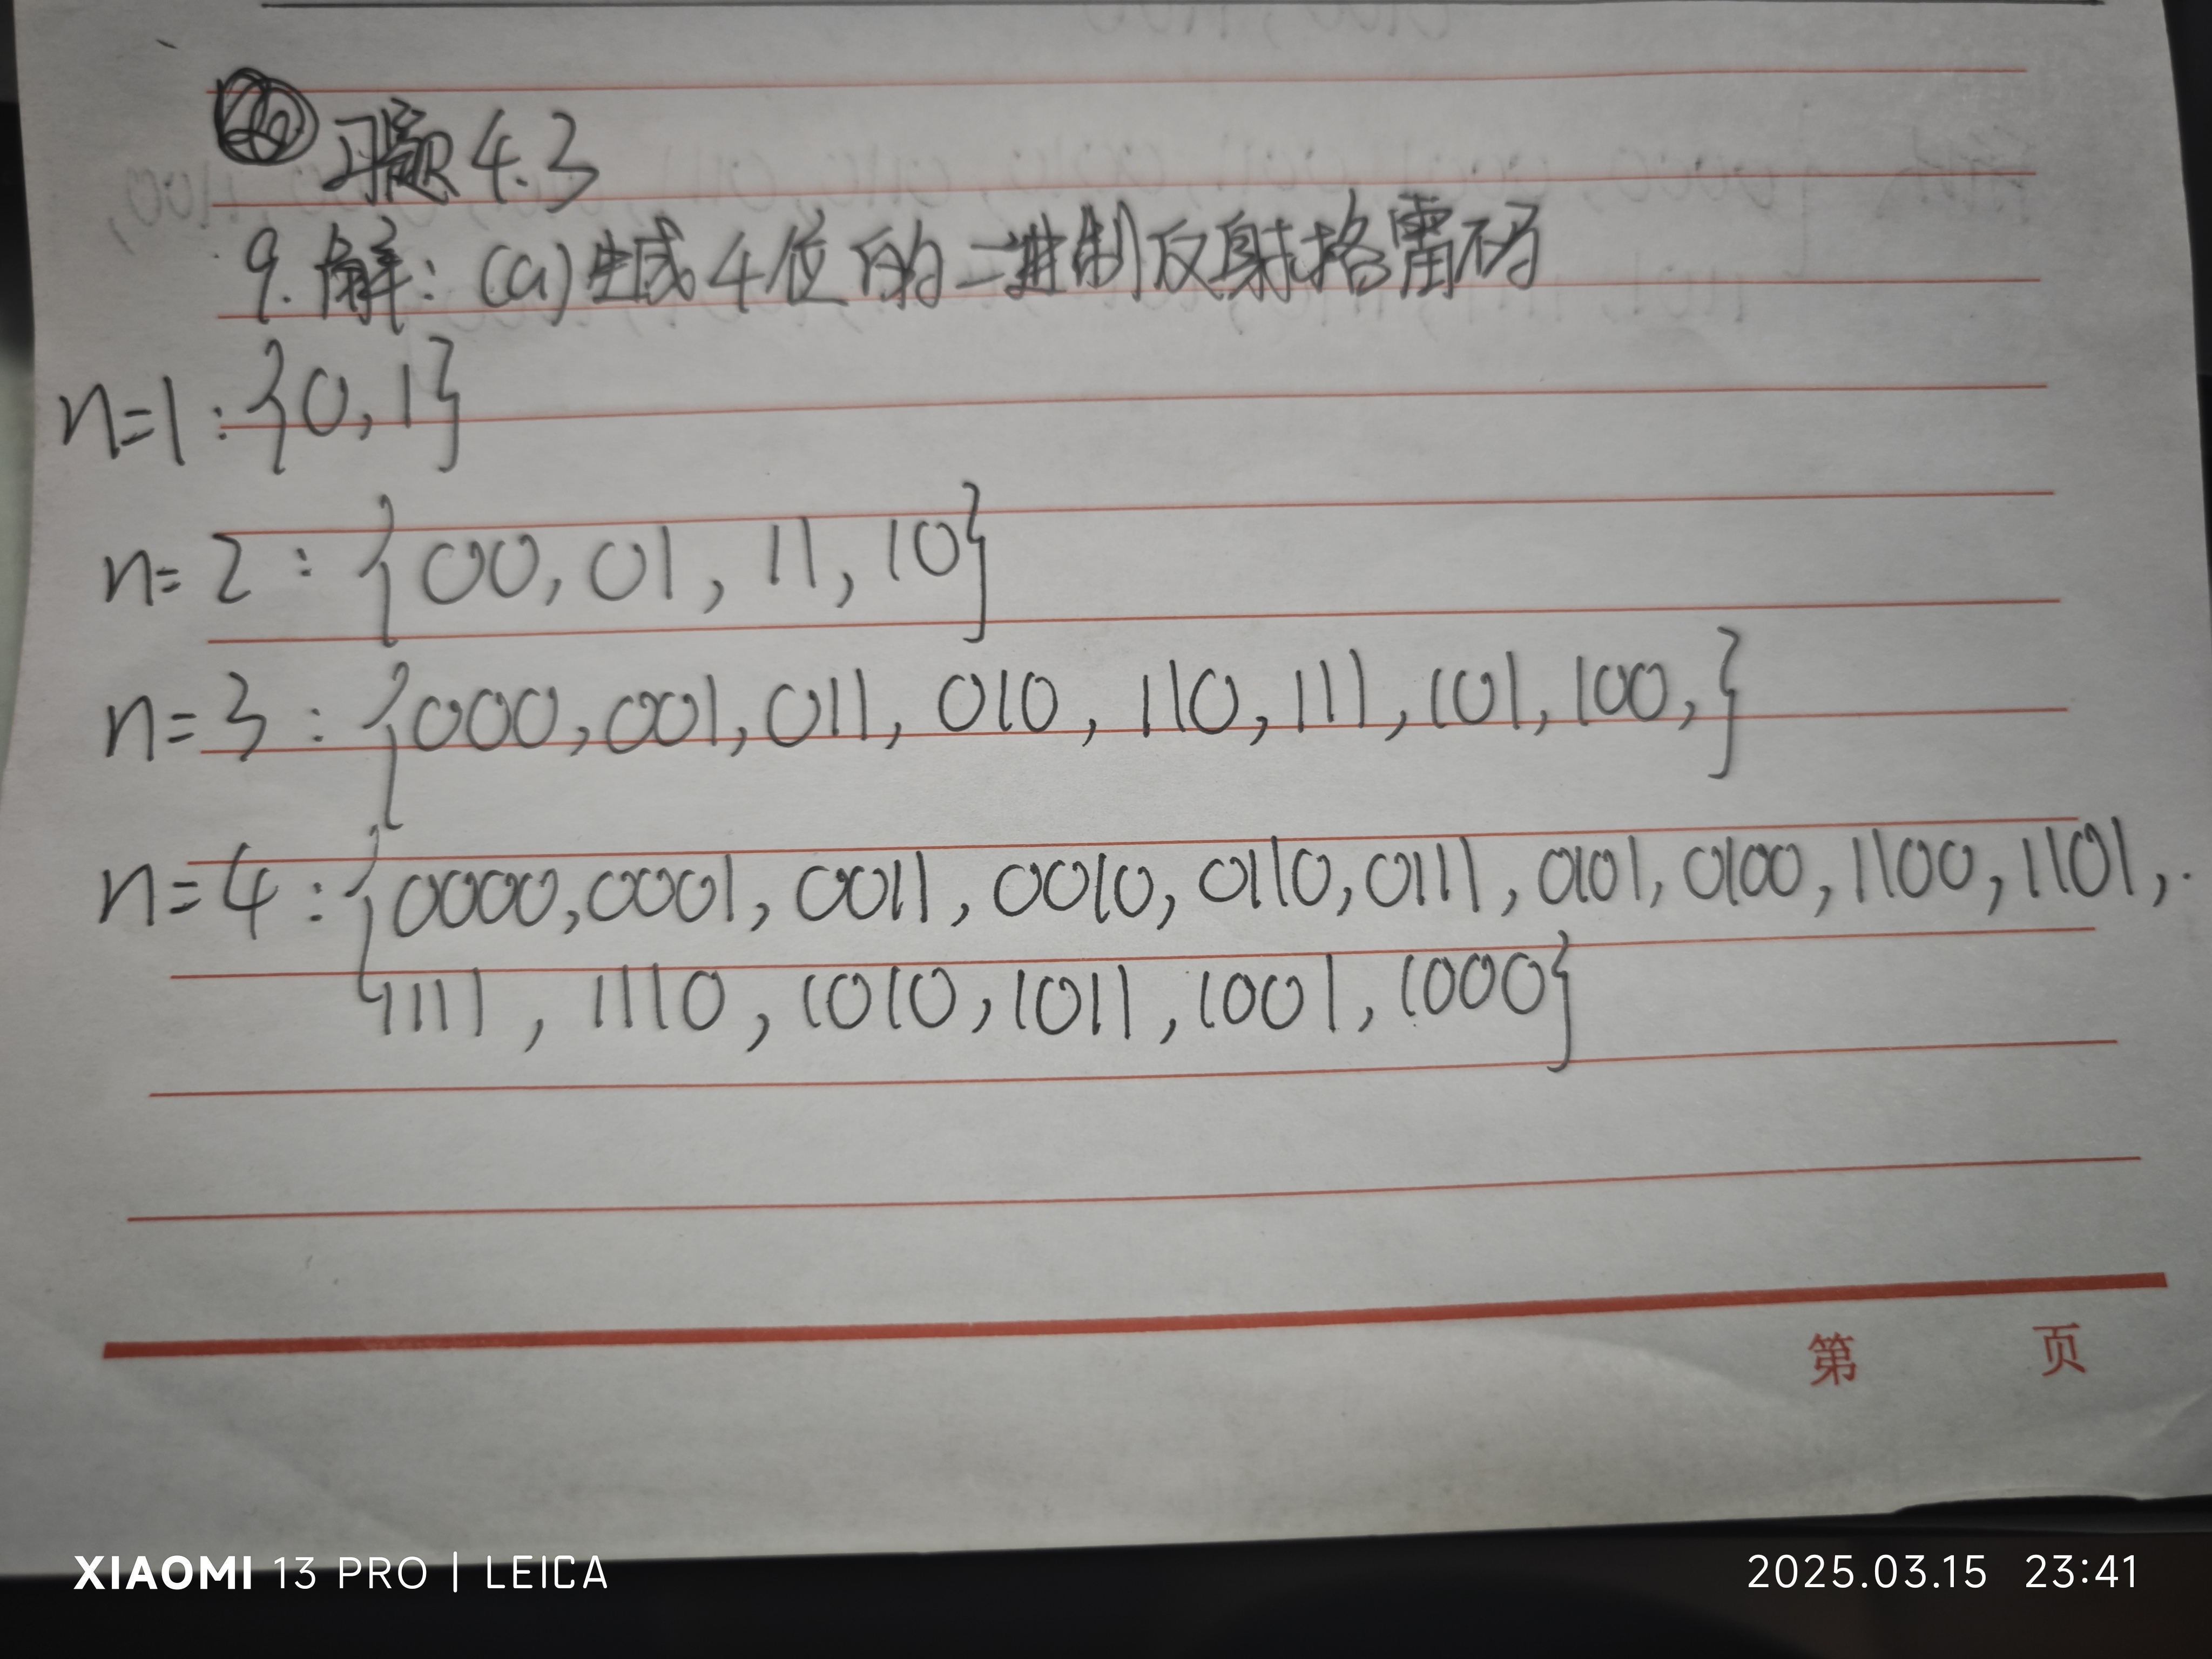 习题4.3
9.解:(a)生成4位的二进制反射格雷码
n=1:{0,1}
n=2:{00,01,11,10}
n=3:{000,001,011,010,110,111,101,100,}
n=4:{0000,0001,0011,0010,0110,0111,0101,0100,1100,1101,
1111,1110,1010,1011,1001,1000}
第 页
XIAOMI 13 PRO | LEICA
2025.03.15 23:41